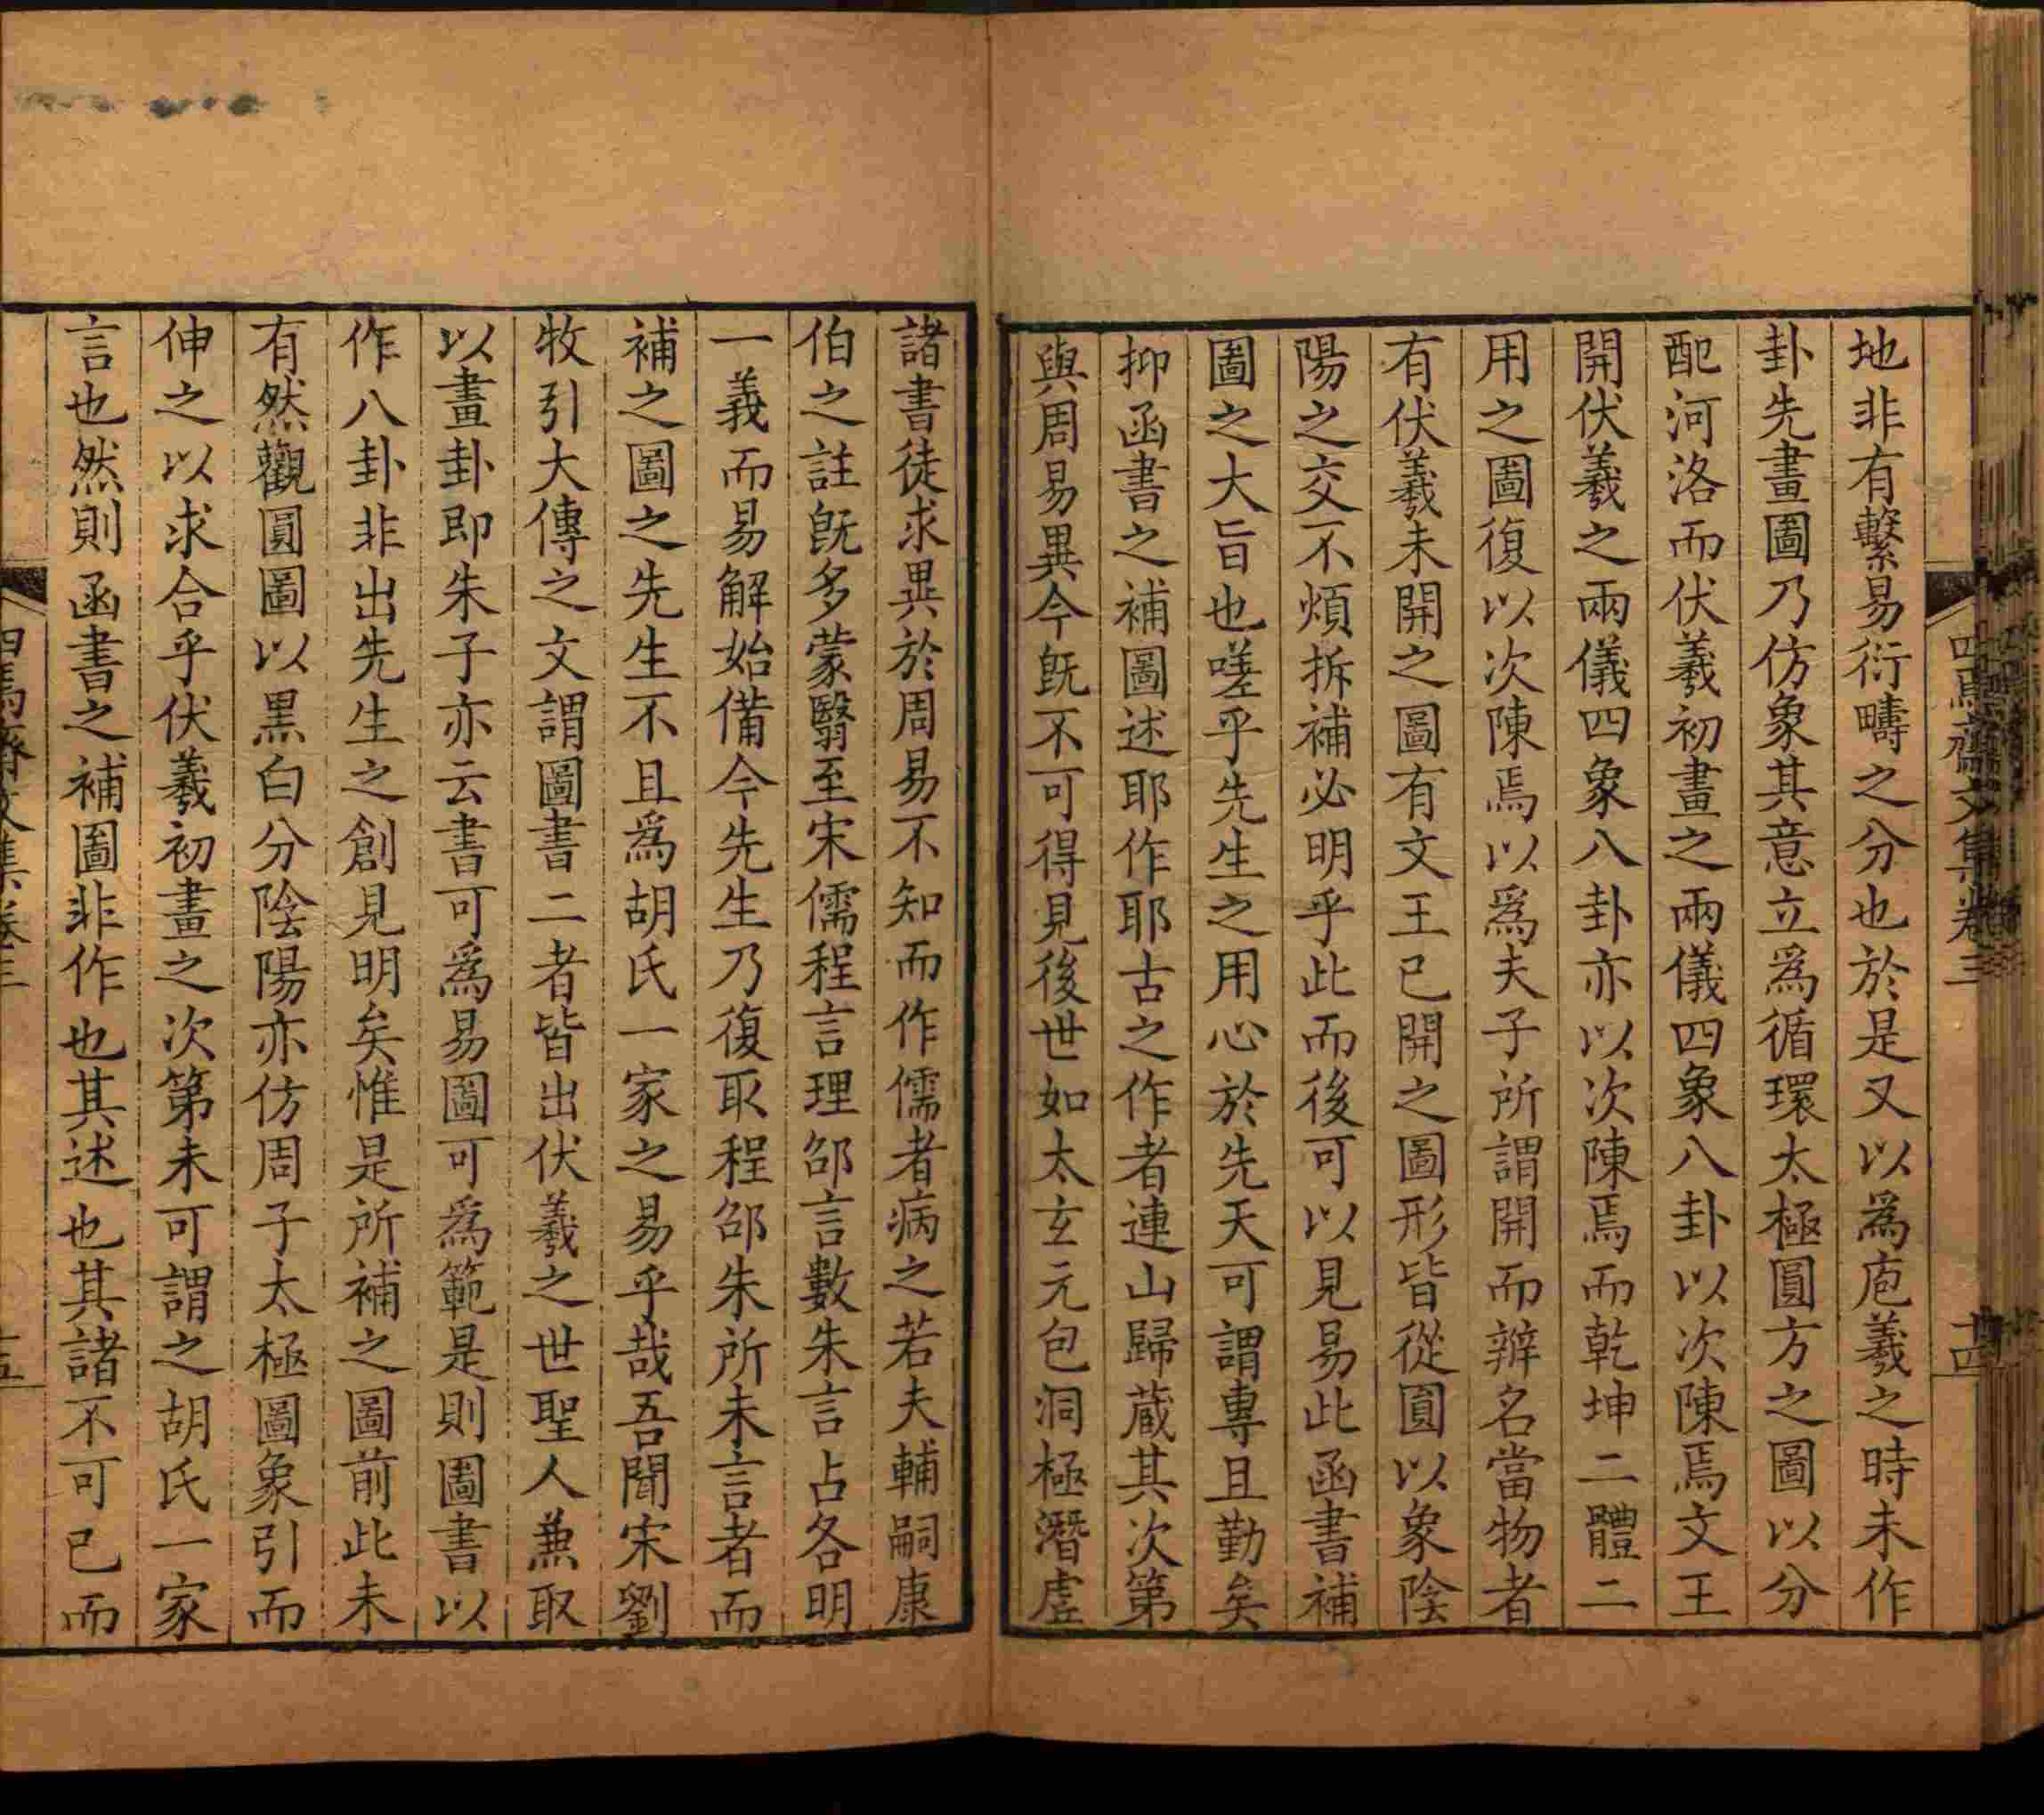 地非有繫易衍疇之分也於是又以爲庖羲之時未作
卦先畫圖乃仿象其意立爲循環太極圓方之圖以分
配河洛而伏羲初畫之兩儀四象八卦以次陳焉文王
開伏羲之兩儀四象八卦亦以次陳焉而乾坤二體二
用之圖復以次陳焉以爲夫子所謂開而辨名當物者
有伏羲未開之圖有文王已開之圖形皆從圓以象陰
陽之交不煩拆補必明乎此而後可以見易此函書補
圖之大旨也嗟乎先生之用心於先天可謂專且勤矣
抑函書之補圖述耶作耶古之作者連山歸藏其次第
與周易異今旣不可得見後世如太玄元包洞極潛虛
四焉齋文集卷三
十四
諸書徒求異於周易不知而作儒者病之若夫輔嗣康
伯之註旣多蒙翳至宋儒程言理邵言數朱言占各明
一義而易解始備今先生乃復取程邵朱所未言者而
補之圖之先生不且爲胡氏一家之易乎哉吾聞宋劉
牧引大傳之文謂圖書二者皆出伏羲之世聖人兼取
以畫卦即朱子亦云書可爲易圖可爲範是則圖書以
作八卦非出先生之創見明矣惟是所補之圖前此未
有然觀圓圖以黑白分陰陽亦仿周子太極圖象引而
伸之以求合乎伏羲初畫之次第未可謂之胡氏一家
言也然則函書之補圖非作也其述也其諸不可已而